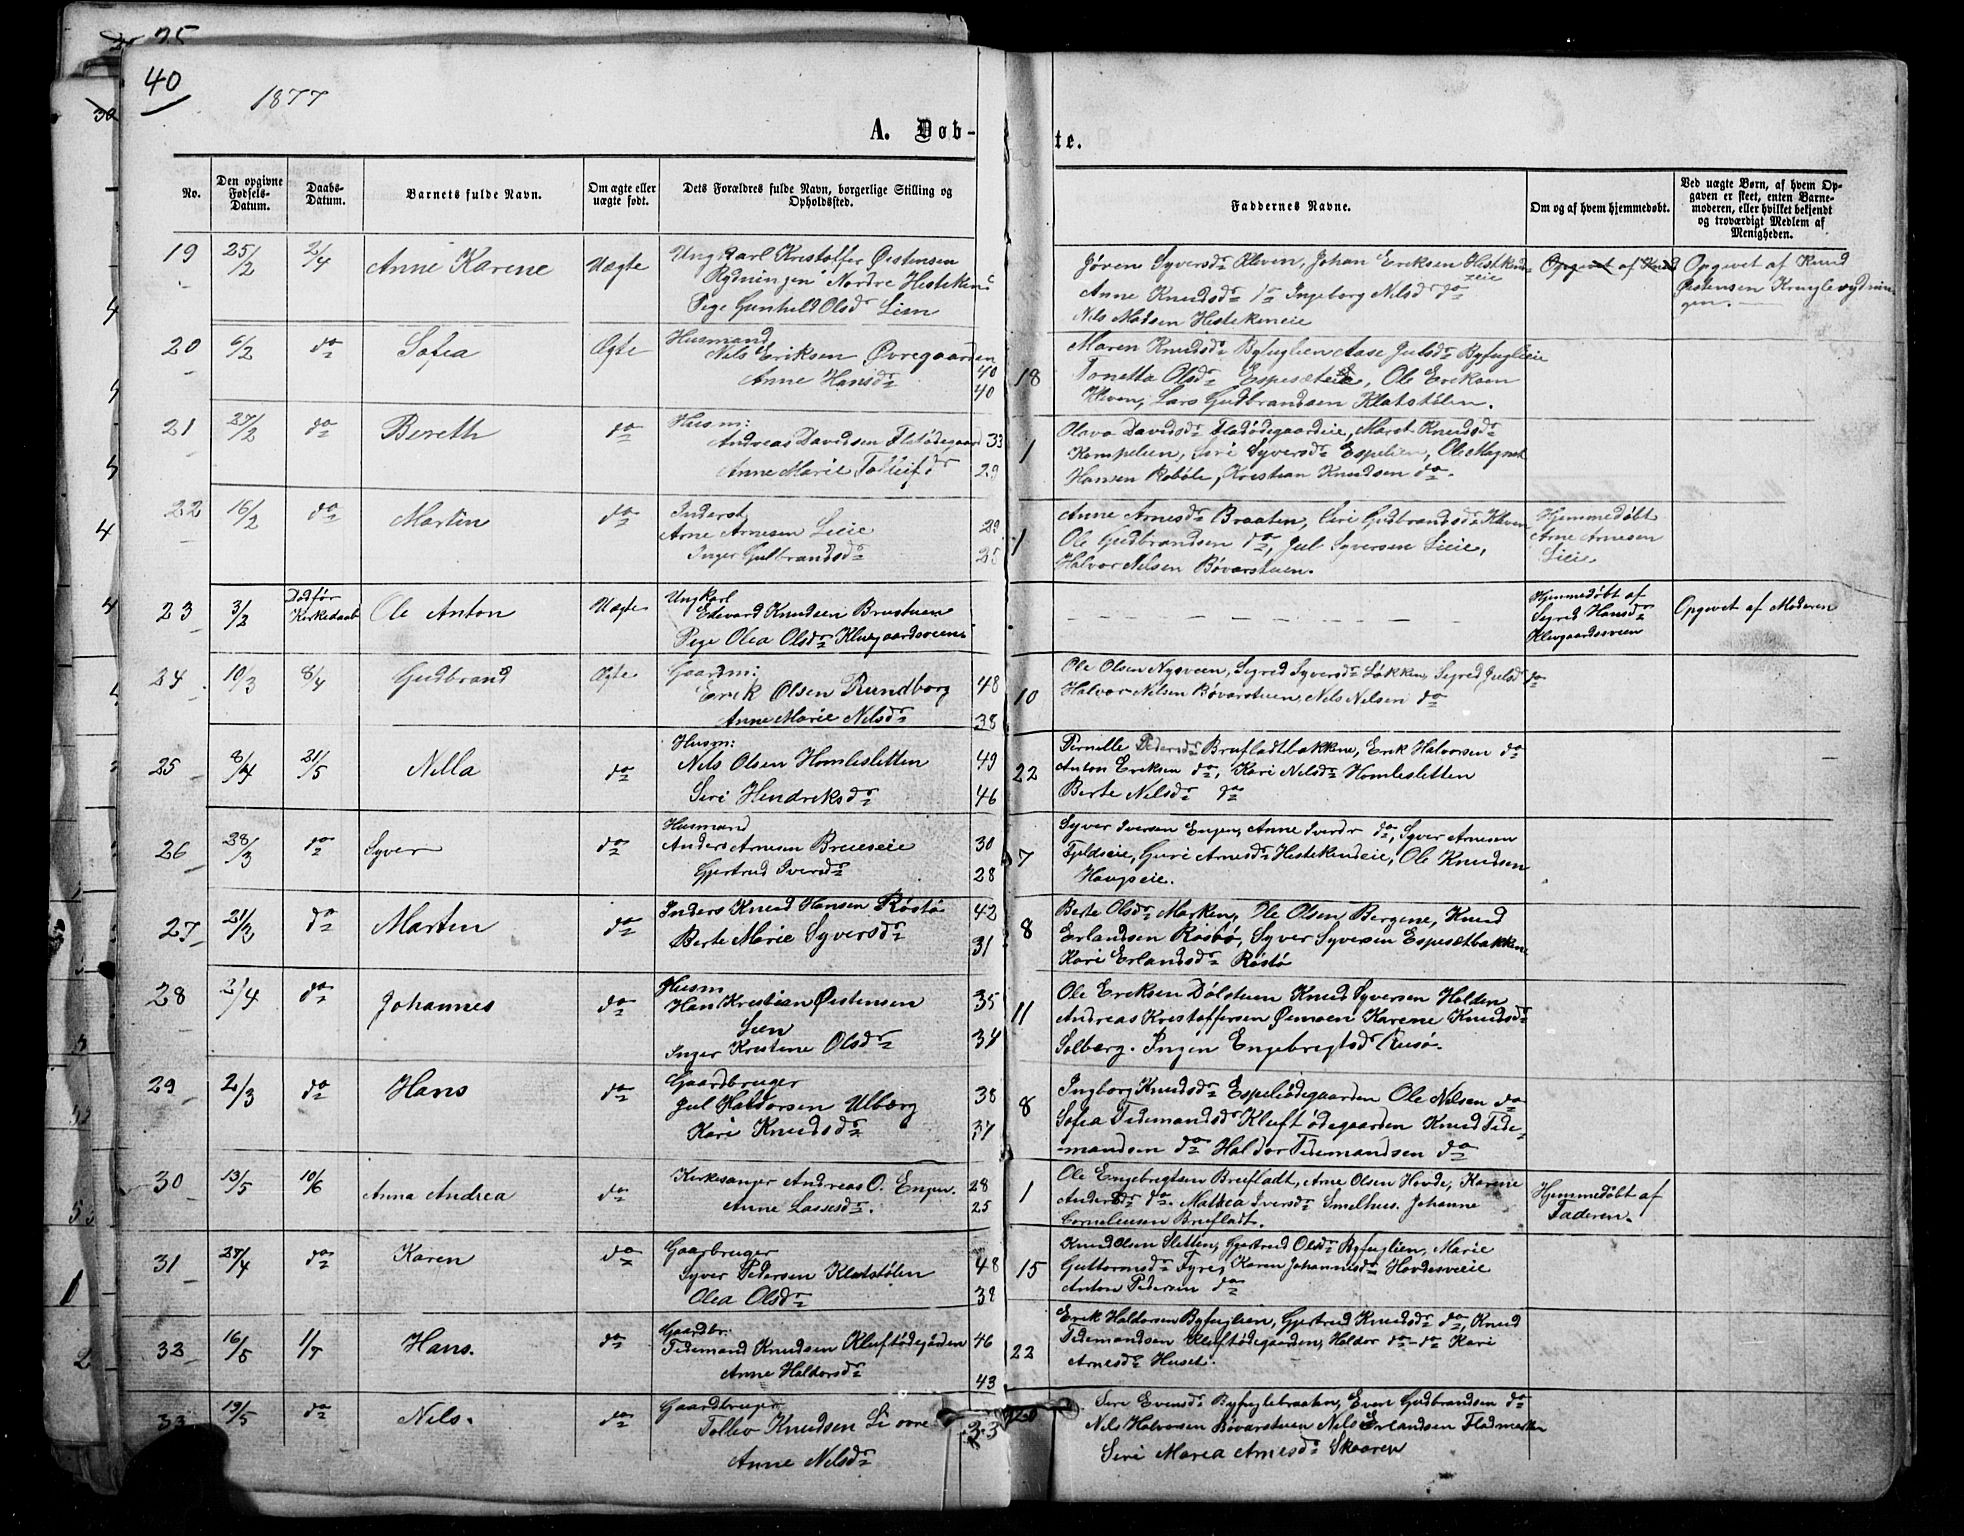 40
1877
A. Døb-
te.
No.
Den opgivne Fødsels-Datum.
Daabs-Datum.
Barnets fulde Navn.
Om ægte eller uægte født.
Dets Forældres fulde Navn, borgerlige Stilling og Opholdssted.
Faddernes Navne.
Om og af hvem hjemmedøbt.
Ved uægte Børn, af hvem Opgaven er skeet, enten Barnemoderen, eller hvilket bekjendt og troværdigt Medlem af Menigheden.
19 25/2 2/4 Anne Karene Uægte Ungkarl Kristoffer Østensen
Rydningen Nordre Hesteken
Pige Gunhild Olsdr Lien
Jøren Syversdr Kleven, Johan Eriksen Hestken-
eie
Anne Knudsdr do Ingeborg Nilsdr do
Nils Madsen Hestekeneie
Opgivet af Knud
Opgivet af Knud
Østensen Kruglerydnin-
gen.
20 6/2 do Sofia Ægte Husmand
Nils Eriksen Øvregaarden 40
Anne Hansdr 40
18
Maren Knudsdr Byfuglien Aase Julsdr Byfuglieie
Tonetta Olsdr Espesæteie, Ole Eriksen
Kleven, Lars Gudbrandsen Klatstølen.
21 27/2 do Bereth do Husm:
Andreas Davidsen Fladødegaard 33
Anne Marie Tolleifsdr 29
1
Olava Davidsdr Fladødegaardeie, Marit Knudsdr
Kompelien, Siri Syversdr Espelien, Ole Magnus
Hansen Robøle, Kristian Knudsen do.
22 16/2 do Martin do Inderst
Arne Arnesen Lieie 29
Inger Gulbrandsdr 25
1
Anne Arnesdr Braaten, Siri Gudbrandsdr Kleven
Ole Gudbrandsen do, Jul Syversen Lieie,
Halvor Nilsen Bøvarstuen.
Hjemmedøbt
Arne Arnesen
Lieie
23 3/2 Død før
Kirkedaab Ole Anton Uægte Ungkarl
Edevard Knudsen Brustuen
Pige Olea Olsdr Klevgaardsveien
Hjemmedøbt af
Sigred Hansdr
Klevgaardsveien
Opgivet af Moderen
24 10/3 8/4 Gudbrand Ægte Gaardm:
Erik Olsen Rundborg 48
Anne Marie Nilsdr 38
10
Ole Olsen Nysveen, Sigred Syversdr Løkken, Sigred Julsdr do
Halvor Nilsen Bøvarstuen, Nils Nilsen do
25 8/4 21/5 Nilla do Husm:
Nils Olsen Homlesletten 49
Siri Hendriksdr 46
22
Pernille Pedersdr Brufladtbakkene, Erik Halvorsen do
Anton Eriksen do, Kari Nilsdr Homlesletten
Berte Nilsdr do
26 28/3 do Syver do Husmand
Anders Arnesen Brueseie 30
Gjertrud Iversdr 28
7
Syver Iversen Engen, Anne Iversdr do, Syver Arnesen
Fjeldseie, Guri Arnesdr Hestekeneie, Ole Knudsen
Haugseie.
27 21/3 do Marten do Inders Knud Hansen Røstø 42
Berte Marie Syversdr 31
8
Berte Olsdr Marken, Ole Olsen Bergene, Knud
Erlandsen Røsbø, Syver Syversen Espesætbakken
Kari Erlandsdr Røstø
28 2/4 do Johannes do Husm
Han Kristian Østensen 35
Lien
Inger Kristine Olsdr 34
11
Ole Eriksen Dølstuen Knud Syversen Holden
Andreas Kristoffersen Øimoen Karene Knudsdr
Solberg. Ingen Engebregtsdr Rusø.
29 2/3 do Hans do Gaardbruger
Jul Haldorsen Ulberg 38
Kari Knudsdr 37
8
Ingborg Knudsdr Espeliødegaarden Ole Nilsen do
Sofia Tidemandsdr Kluftødegaarden Knud Tide-
mandsen do Haldor Tidemandsen do
30 13/5 10/6 Anna Andrea do Kirkesanger Andreas O. Engen. 28
Anne Lassesdr. 25
1
Ole Engebregtsen Brufladt, Arne Olsen Hovde, Karine
Andersdr do. Mathea Iversdr Smelhus. Johanne
Corneliusen Brufladt.
Hjemmedøbt af
Faderen.
31 27/4 do Karen do Gaarbruger
Syver Pedersen Klatstølen 48
Olea Olsdr 39
15
Knud Olsen Sletten, Gjertrud Olsdr Byfuglien, Marie
Guttormsdr Fyre, Karen Johannesdr Hovdesveie
Anton Pedersen do
32 16/5 1/7 Hans. do Gaardbr.
Tidemand Knudsen Kluftødegården 46
Anne Haldorsdr 43
22
Erik Haldorsen Byfuglien, Gjertrud Knudsdr do, Knud
Tidemandsen Kluftødegaarden, Haldor do do Kari
Arnesdr Huset.
33 19/5 do Nils. do Gaardbruger
Tollev Knudsen Li øvre 33
Anne Nilsdr
20
Siri Evensdr Byfuglebraaten, Even Gudbrandsen do
Nils Halvorsen Bøvarstuen Nils Erlandsen Fladmarken
Siri Marea Arnesdr Skaaren